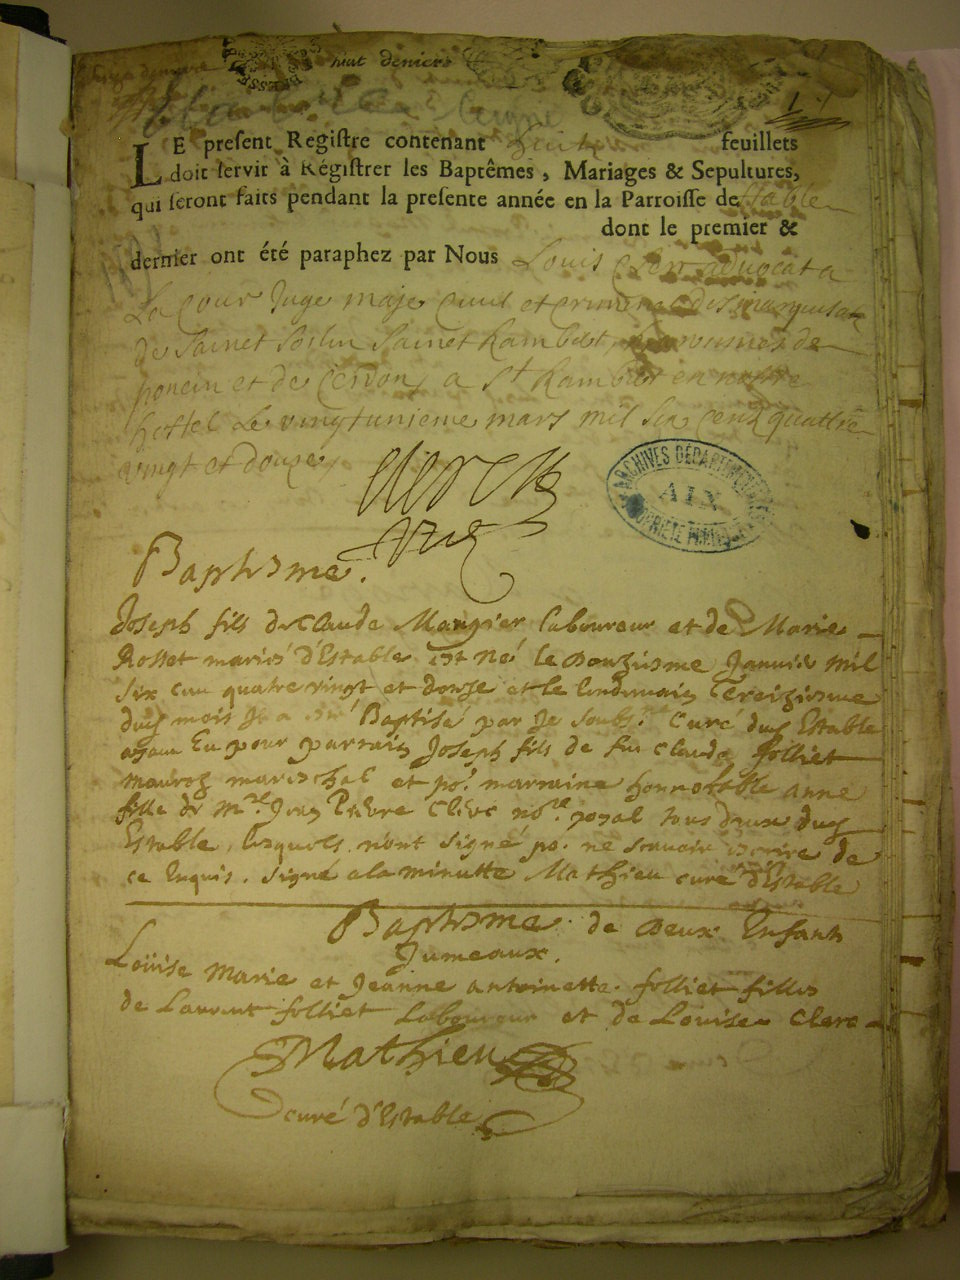 huit deniers
LE present Registre contenant huit feuillets
doit servir à Régistrer les Baptêmes, Mariages & Sepultures,
qui seront faits pendant la presente année en la Parroisse de
dont le premier &
dernier ont été paraphez par Nous Louis Clerc advocat a
La Cour Juge maje civil et criminel des marquisat
de Sainct Sorlin Sainct Rambert de
poncin et de Cerdon, a St Rambert en nostre
hostel Le vingtunieme mars mil six centz quattre
vingt et douze,
clerck
ARCHIVES DÉPARTEMENTALES
AIN
PROPRIÉTÉ PUBLIQUE
Baptesme.
Joseph fils de Claude Mangier laboureur et de Marie
Rosset mariés d'Estable est né le douziesme Janvier mil
six cen quatre vingt et douze et le lendemain Treiziesme
dud mois Il a esté Baptisé par Je soubs.né Curé dud Estable
ayant Eu pour parrain Joseph fils de feu Claude folliet
mareschal et po.r marraine honnorable anne
fille de M.re Clerc no.re royal tous deux dud
Estable, lesquels n'ont signé po. ne scavoir escrire de
ce Enquis. Signé a la minutte Mathieu curé d'Estable
Baptesme de deux Enfants
Jumeaux.
Loüise Marie et Jeanne antoinette folliet filles
de Laurent folliet Laboureur et de Louise Clerc
Mathieu
curé d'Estable